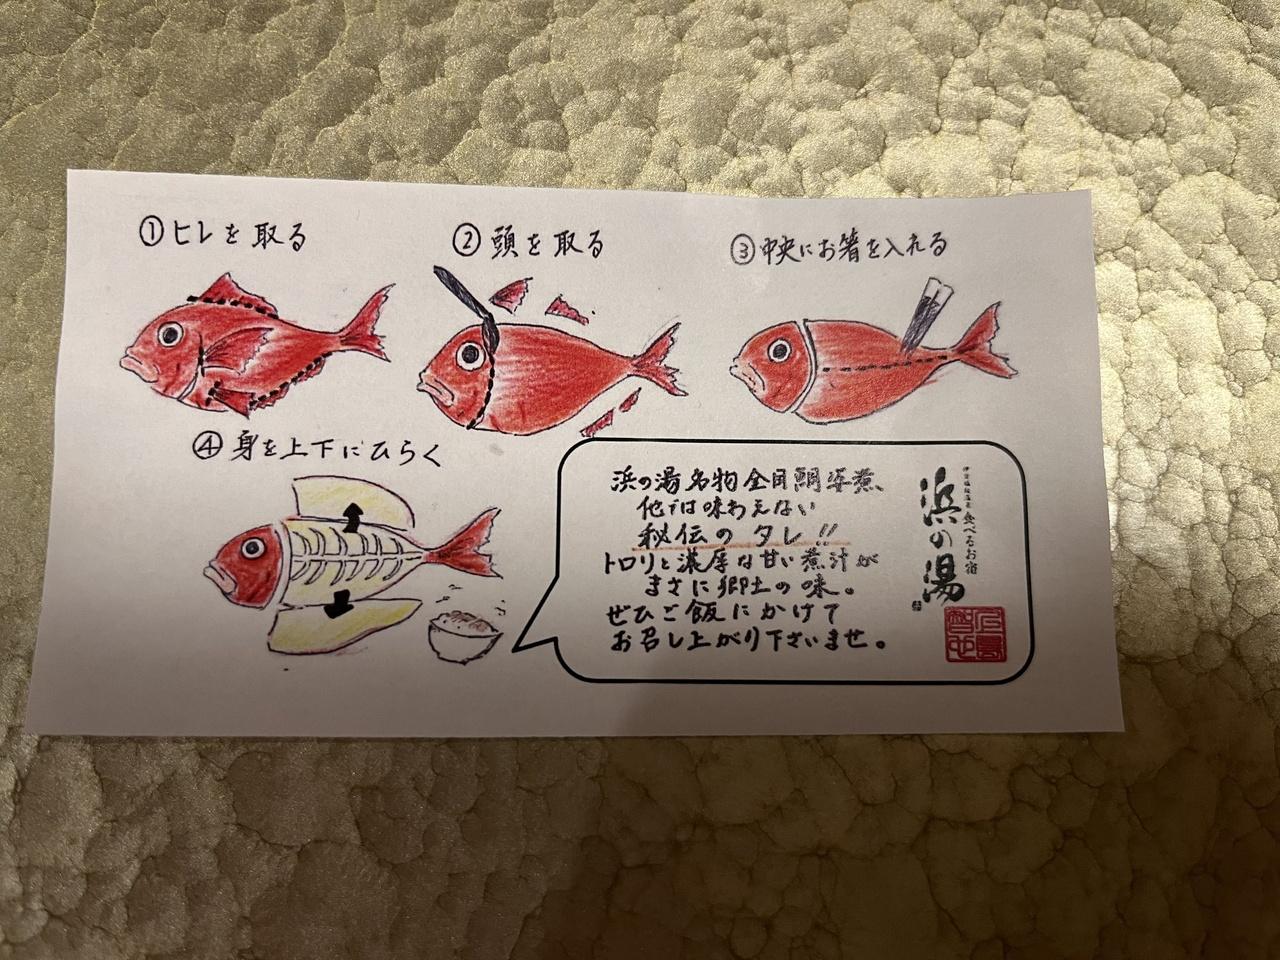 ①ヒレを取る
②頭を取る
③中央にお箸を入れる
④身を上下にひらく
浜の湯名物金目鯛姿煮
他では味わえない
秘伝のタレ!!
トロリと濃厚な甘い煮汁が
まさに郷土の味。
ぜひご飯にかけて
お召し上がり下さいませ。
食べるお宿
浜の湯